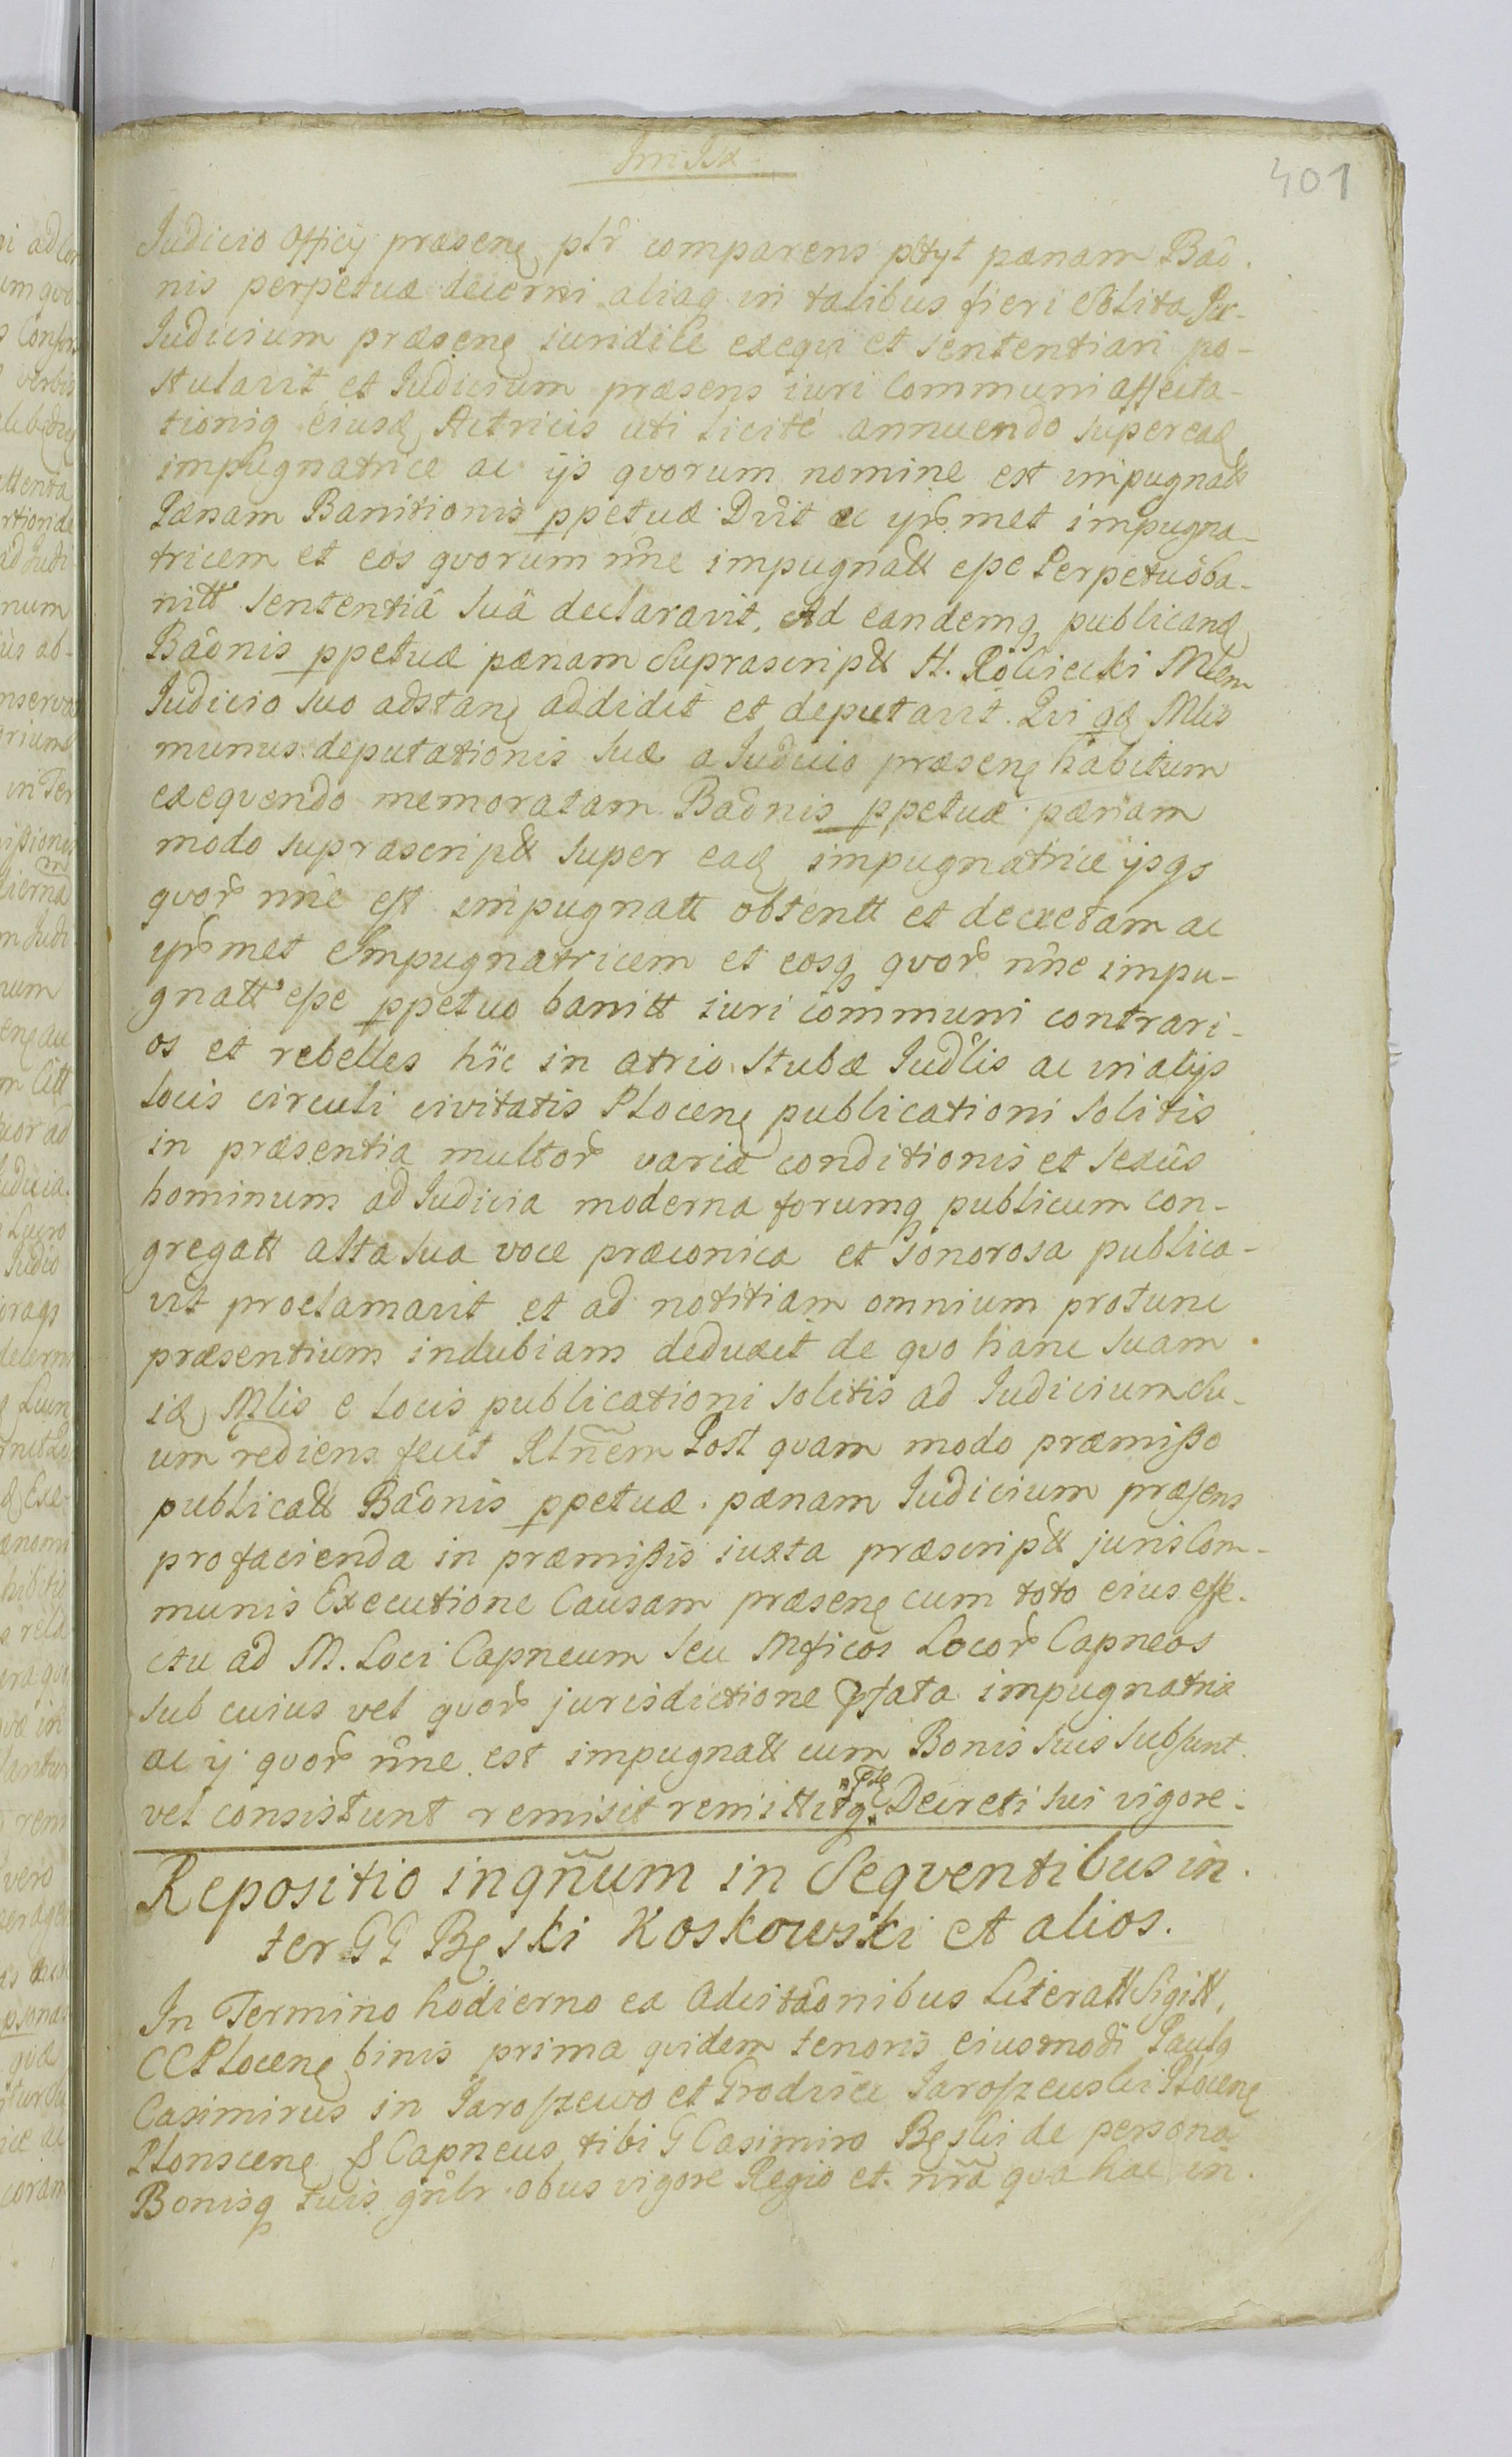 401
Judicio Officy præsenę ptr comparens petyt pænam Bao-
nis perpetuæ decerni aliaq in talibus fieri solita per
Judicium præsenę iuridice exequi et sententiari po-
stulavit et Judicium præsens iuri Communi affecta-
tioniq eiusd Actricis uti licite annuendo super ead
impugnatrice ac ijs qvorum nomine est impugnatt
Pænam Banitionis ppetuæ Dvit ac ipsmet impugna-
tricem et eos qvorum nne impugnatt esse Perpetuo ba-
nitt sententiâ suâ declaravit. Ad eandemq publicand
Baonis ppetuæ pænam Suprascriptt H. Rościecki Mlem
Judicio suo adstanę addidit et deputavit. Qui qd Mlis
munus deputationis suæ a Judicio præsenę habitum
exeqvendo memoratam Baonis ppetuæ pænam
modo suprascriptt super ead impugnatrice ijsqs
qvor nne est impugnatt obtentt et decretam ac
ipsmet Impugnatricem et eosq qvor nne impu-
gnatt esse ppetuo banitt iuri communi contrari-
os et rebelles hic in atrio Stubæ Judlis ac in alijs
locis circuli civitatis Plocenę publicationi solitis
in præsentia multor variæ conditionis et sexûs
hominum ad Judicia moderna forumq publicum con-
gregatt alta sua voce præconica et sonorosa publica-
vit proclamavit et ad notitiam omnium protunc
præsentium indubiam deduxit de quo hanc suam
id Mlis e locis publicationi solitis ad Judicium su-
um rediens fecit Rlnem Post quam modo præmisso
publicatt Baonis ppetuæ pænam Judicium præsens
pro facienda in præmissis iuxta præscriptt juris Com-
munis Executione Causam præsenę cum toto eius effe-
ctu ad M. Loci Capneum seu Mficos Locor Capneos
sub cuius vel qvor jurisdictione pfata impugnatrix
ac ij qvor nne est impugnatt cum Bonis suis subsunt
vel consistunt remisit remittitq Decreti sui vigore.
Repositio inqnum in Seqventibus in-
ter GG Bęski Koskowski et alios.
In Termino hodierno ex Adcitaonibus Literatt Sigitt
CCPlocenę binis prima qvidem tenoris eiusmodi Paulq
Casimirus in Jaroszewo et Grodnia Jaroszewski Plocenę
Plonscenę & Capneus tibi G Casimiro Bęski de persona
Bonisq tuis gnlr obus vigore Regio et nra qua hac in